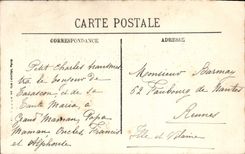 CARTE POSTALE
CORRESPONDANCE
ADRESSE
Petit Charles
le bonjour de
Tarascon et de sa
Tante Maria, à
Grand Maman, Papa
Maman, Oncles Francis
et Alphonse
Monsieur Barmay
52 Faubourg de Nantes
Rennes
Ille et Vilaine